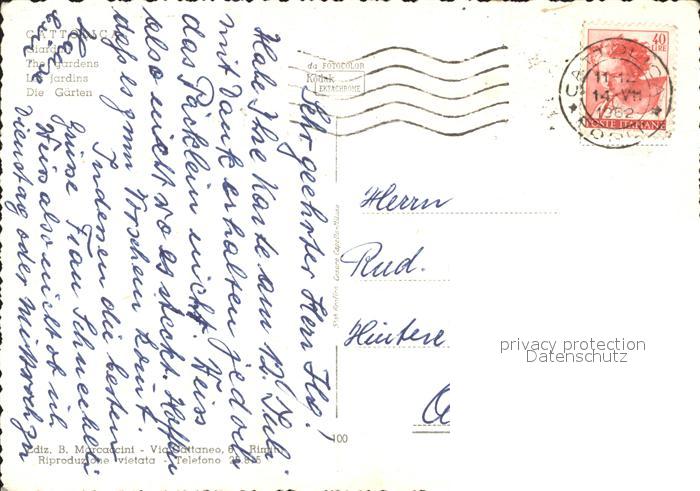 CATTOLICA
Giardini
The gardens
Les jardins
Die Gärten
da FOTOCOLOR
Kodak
EKTACHROME
40
LIRE
11-12
14-VII
1962
POSTE ITALIANE
Sehr geehrter Herr
Habe Ihre Karte am 12. Juli
mit Dank erhalten jedoch
das Päcklein nicht. Weiss
also nicht wo es steckt. Hoffen
dass es zum Vorschein komt.
Indessen die besten
Grüsse Frau Schneebeli
Weiss also nicht ob ich
Dienstag oder Mittwoch zu
Herrn
Rud.
Hintere
privacy protection
Datenschutz
100
Ediz. B. Marcaccini - Via Cattaneo, 6 - Rimini
Riproduzione vietata - Telefono